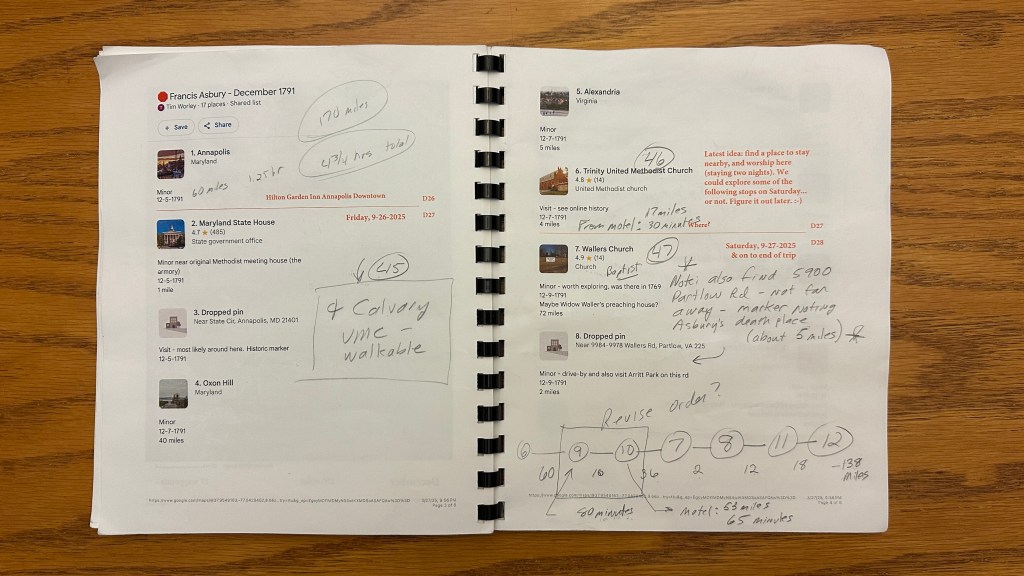 Francis Asbury - December 1791
Tim Worley · 17 places · Shared list
+ Save
Share
170 miles
4 3/4 hrs total
1. Annapolis
Maryland
Minor
12-5-1791
60 miles 1.25 hr
Hilton Garden Inn Annapolis Downtown D26
Friday, 9-26-2025 D27
2. Maryland State House
4.7 ★ (485)
State government office
Minor near original Methodist meeting house (the
armory)
12-5-1791
1 mile
45
& Calvary
UMC -
walkable
3. Dropped pin
Near State Cir, Annapolis, MD 21401
Visit - most likely around here. Historic marker
12-5-1791
4. Oxon Hill
Maryland
Minor
12-7-1791
40 miles
5. Alexandria
Virginia
Minor
12-7-1791
5 miles
46
6. Trinity United Methodist Church
4.8 ★ (14)
United Methodist church
Visit - see online history
12-7-1791
4 miles
17 miles
From motel: 30 minutes
Where?
Latest idea: find a place to stay
nearby, and worship here
(staying two nights). We
could explore some of the
following stops on Saturday...
or not. Figure it out later. :-)
D27
Saturday, 9-27-2025 D28
& on to end of trip
47
7. Wallers Church
4.9 ★ (14)
Church
Baptist
Minor - worth exploring, was there in 1769
12-9-1791
Maybe Widow Waller's preaching house?
72 miles
Note: also find 5900
Partlow Rd - not far
away - marker noting
Asbury's death place
(about 5 miles)
8. Dropped pin
Near 9984-9978 Wallers Rd, Partlow, VA 225
Minor - drive-by and also visit Arritt Park on this rd
12-9-1791
2 miles
Revise order?
6 9 10 7 8 11 12
60 10 36 2 12 18 -138
miles
80 minutes
motel: 53 miles
65 minutes